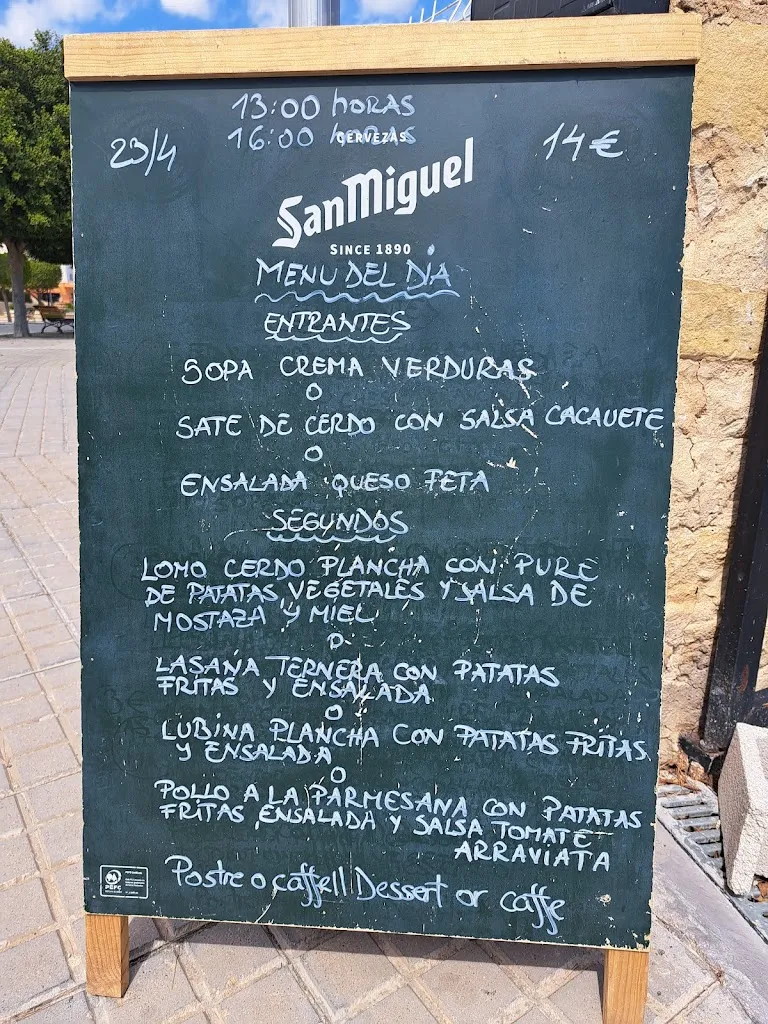 13:00 HORAS
23/4 16:00 HORAS 14€
CERVEZAS
SanMiguel
SINCE 1890
MENU DEL DÍA
ENTRANTES
SOPA CREMA VERDURAS
O
SATE DE CERDO CON SALSA CACAUETE
O
ENSALADA QUESO FETA
SEGUNDOS
LOMO CERDO PLANCHA CON PURE
DE PATATAS VEGETALES Y SALSA DE
MOSTAZA Y MIEL
O
LASAÑA TERNERA CON PATATAS
FRITAS Y ENSALADA
O
LUBINA PLANCHA CON PATATAS FRITAS
Y ENSALADA
O
POLLO A LA PARMESANA CON PATATAS
FRITAS, ENSALADA Y SALSA TOMATE
ARRAVIATA
Postre o caffe// Dessert or caffe
PEFC